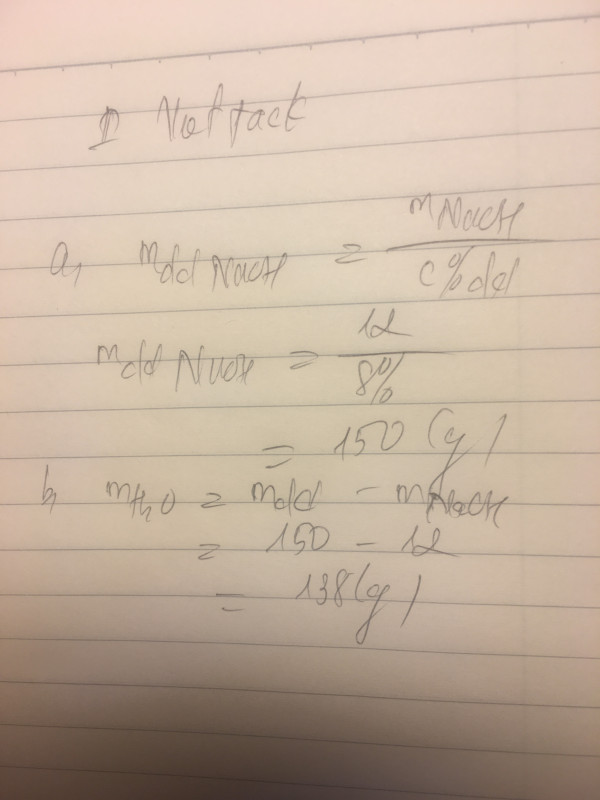 a, mdd NaOH = mNaOH / C%dd
mdd NaOH = 12 / 8%
= 150 (g)
b, mH2O = mdd - mNaOH
= 150 - 12
= 138 (g)